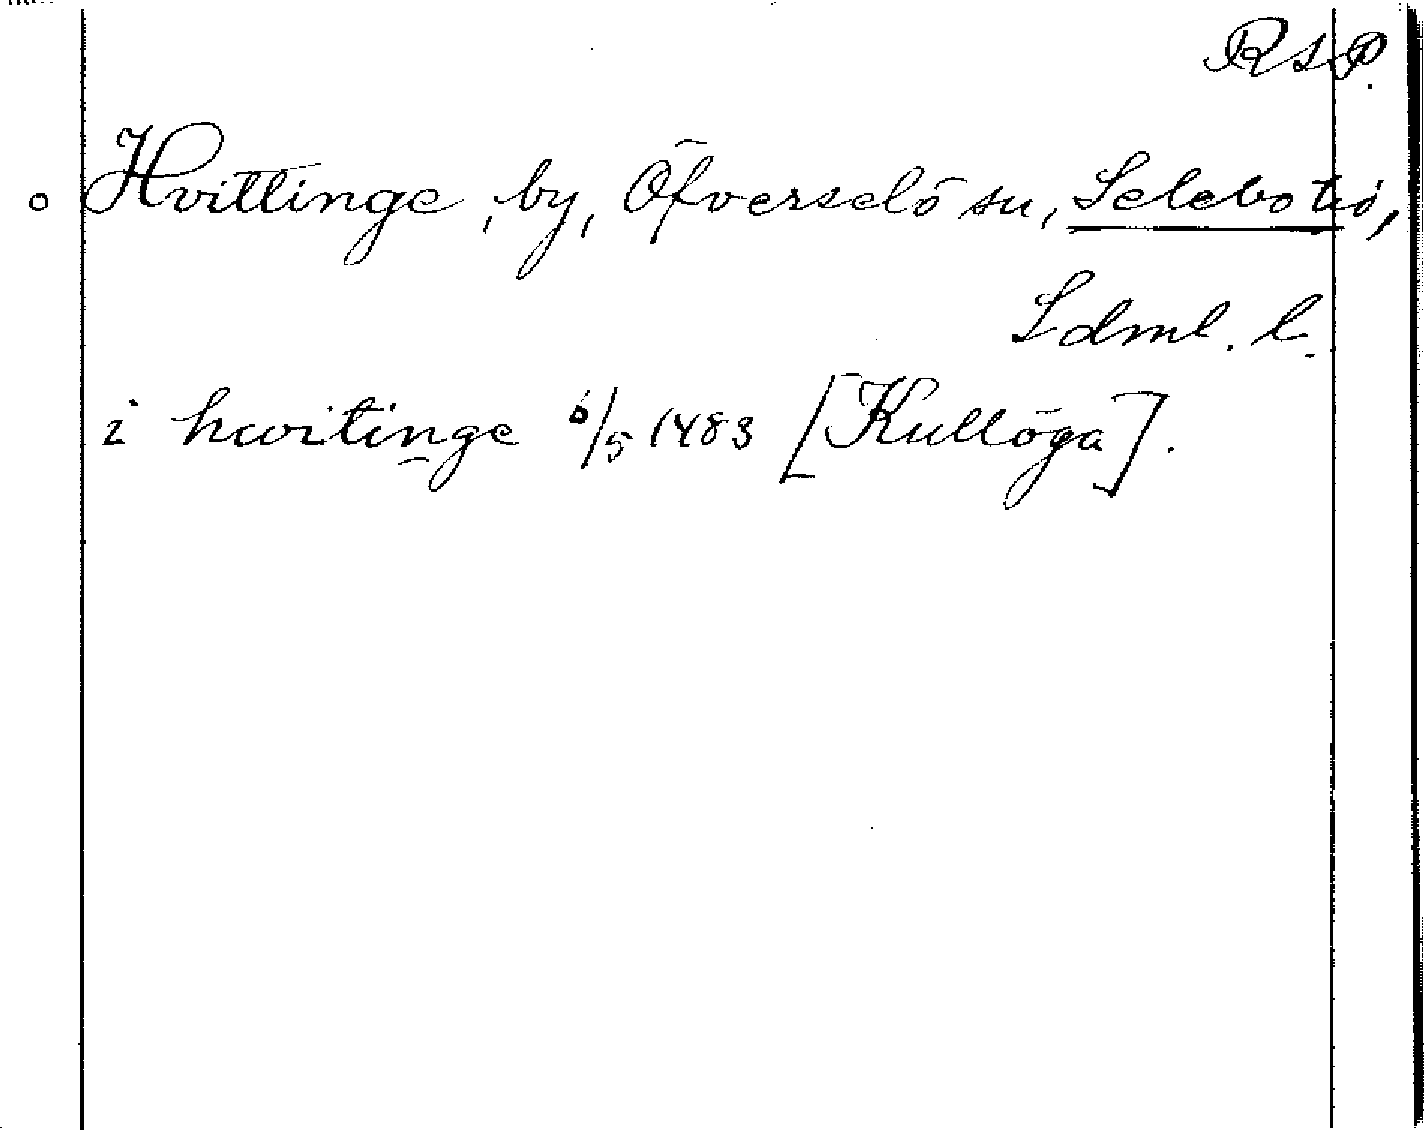 RSP.
o Hvittinge, by, Öfverselö sn, Selebo hd,
Sdml. l.
i hwitinge 6/5 1483 [Kullöga].